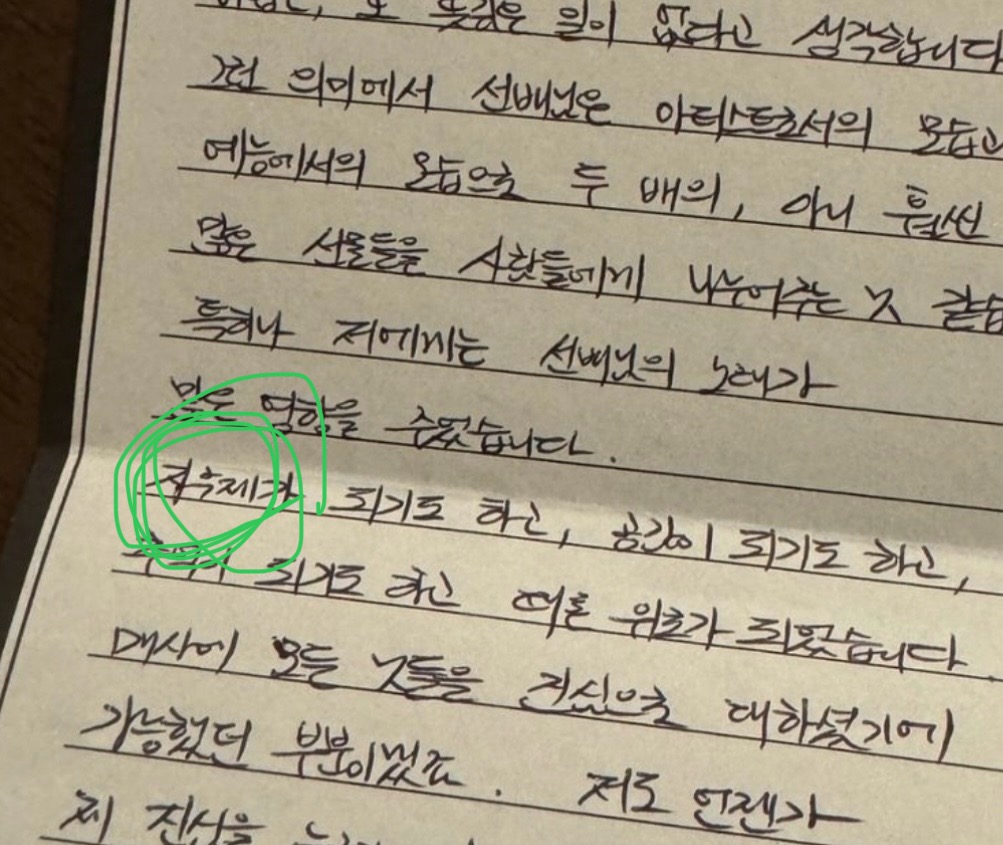 또 뜻깊은 일이 없다고 생각합니다
그런 의미에서 선배님은 아티스트로서의 모습과
예능에서의 모습으로 두 배의, 아니 훨씬
많은 선물들을 사람들에게 나누어주는 것 같습
특히나 저에게는 선배님의 노래가
많은 역할을 주었습니다.
되기도 하고, 공감이 되기도 하고,
되기도 하고 때론 위로가 되었습니다.
매사에 모든 것들을 진심으로 대하셨기에
가능했던 부분이겠죠. 저도 언젠가
제 진심을